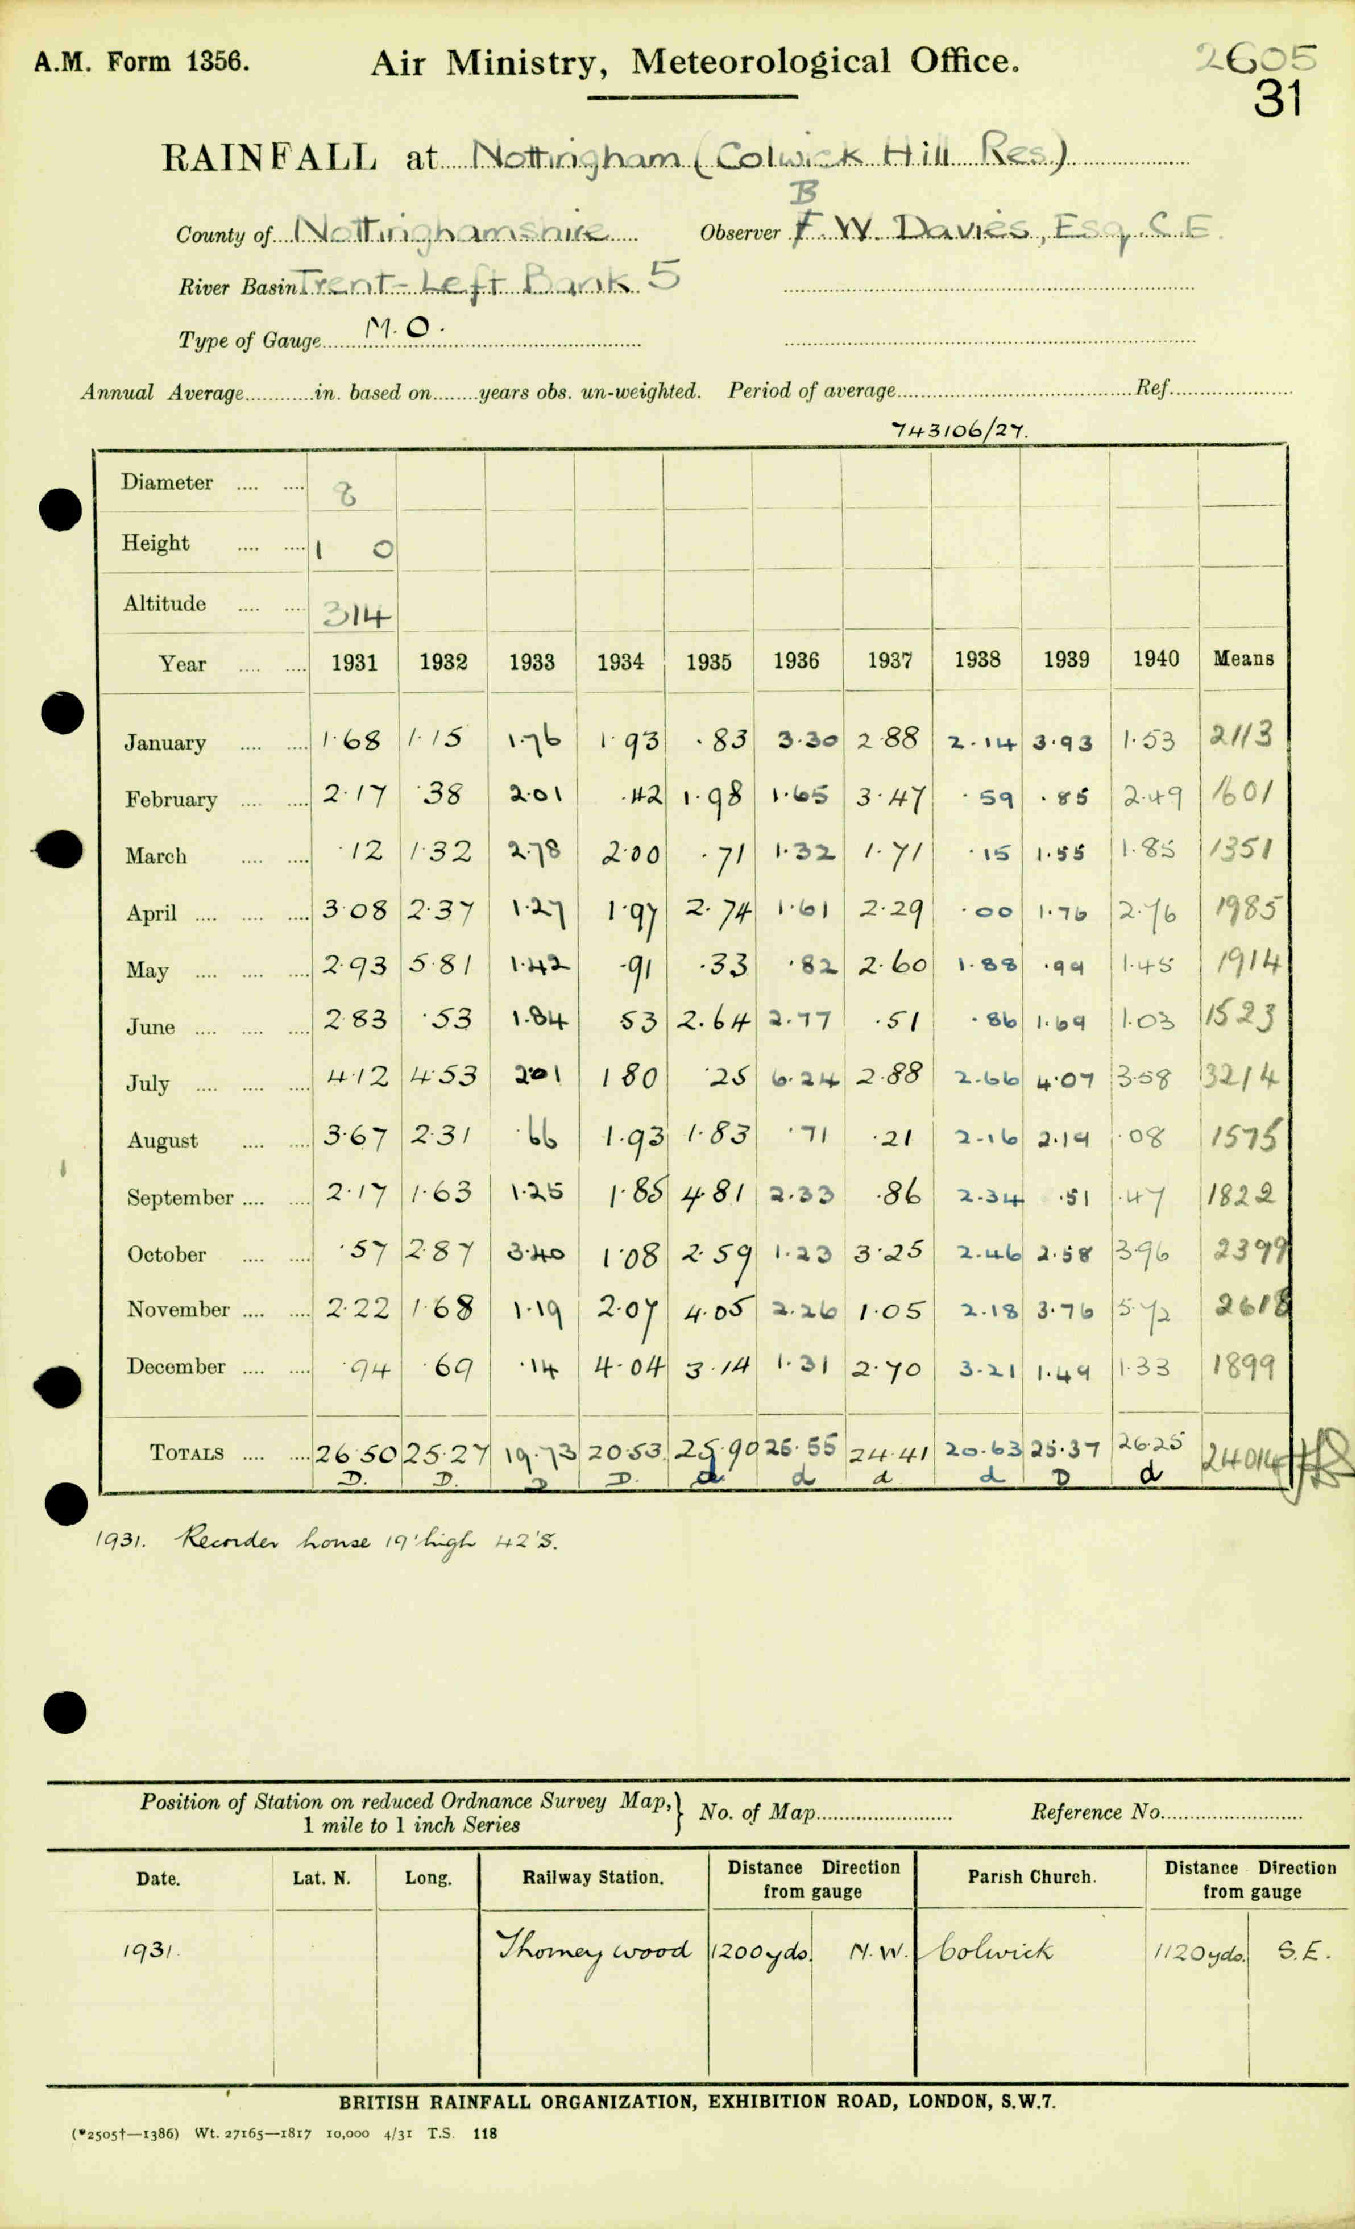 A.M. Form 1356. Air Ministry, Meteorological Office. 2605
31
RAINFALL at Nottingham (Colwick Hill Res)
B
County of Nottinghamshire Observer F. W. Davies, Esq. C.E.
River Basin Trent-Left Bank 5
Type of Gauge M.O.
Annual Average in. based on years obs. un-weighted. Period of average Ref.
743106/27.
Diameter 8
Height 1 0
Altitude 314
Year 1931 1932 1933 1934 1935 1936 1937 1938 1939 1940 Means
January 1.68 1.15 1.76 1.93 .83 3.30 2.88 2.14 3.93 1.53 2113
February 2.17 .38 2.01 .42 1.98 1.65 3.47 .59 .85 2.49 1601
March .12 1.32 2.78 2.00 .71 1.32 1.71 .15 1.55 1.85 1351
April 3.08 2.37 1.27 1.97 2.74 1.61 2.29 .00 1.76 2.76 1985
May 2.93 5.81 1.42 .91 .33 .82 2.60 1.88 .99 1.45 1914
June 2.83 .53 1.84 53 2.64 2.77 .51 .86 1.69 1.03 1523
July 4.12 4.53 2.01 1 80 .25 6.24 2.88 2.66 4.07 3.58 3214
August 3.67 2.31 .66 1.93 1.83 .71 .21 2.16 2.19 .08 1575
September 2.17 1.63 1.25 1.85 4.81 2.33 .86 2.34 .51 .47 1822
October .57 2.87 3.40 1.08 2.59 1.23 3.25 2.46 2.58 3.96 2399
November 2.22 1.68 1.19 2.07 4.05 2.26 1.05 2.18 3.76 5.72 2618
December .94 .69 .14 4.04 3.14 1.31 2.70 3.21 1.49 1.33 1899
TOTALS 26.50 25.27 19.73 20.53 25.90 25.55 24.41 20.63 25.37 26.25 24014
D. D. D D. d d d d D d
1931. Recorder house 19' high 42' S.
Position of Station on reduced Ordnance Survey Map, } No. of Map Reference No.
1 mile to 1 inch Series
Date. Lat. N. Long. Railway Station. Distance Direction from gauge Parish Church. Distance Direction from gauge
1931. Thorneywood 1200 yds. N.W. Colwick 1120 yds. S.E.
BRITISH RAINFALL ORGANIZATION, EXHIBITION ROAD, LONDON, S.W.7.
(*2505†—1386) Wt. 27165—1817 10,000 4/31 T.S. 118